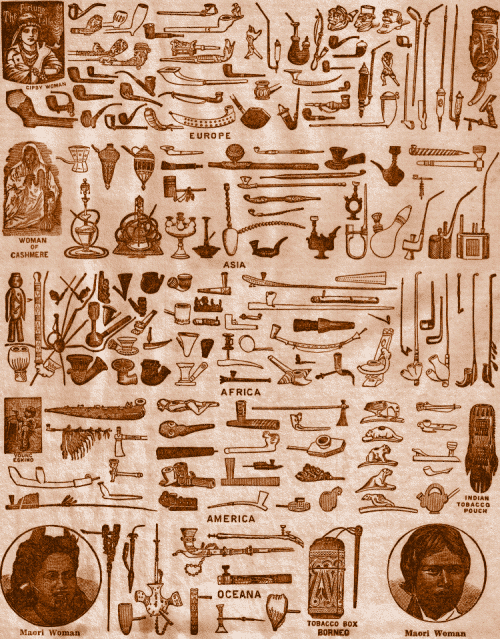 The Fortune
Teller
GIPSY WOMAN
EUROPE
WOMAN
OF
CASHMERE
ASIA
AFRICA
YOUNG
ESKIMO
AMERICA
INDIAN
TOBACCO
POUCH
OCEANA
Maori Woman
TOBACCO BOX
BORNEO
Maori Woman